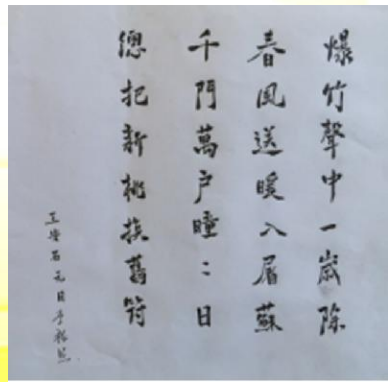 爆竹聲中一歲除
春風送暖入屠蘇
千門萬户曈〻日
總把新桃換舊符
王安石元日